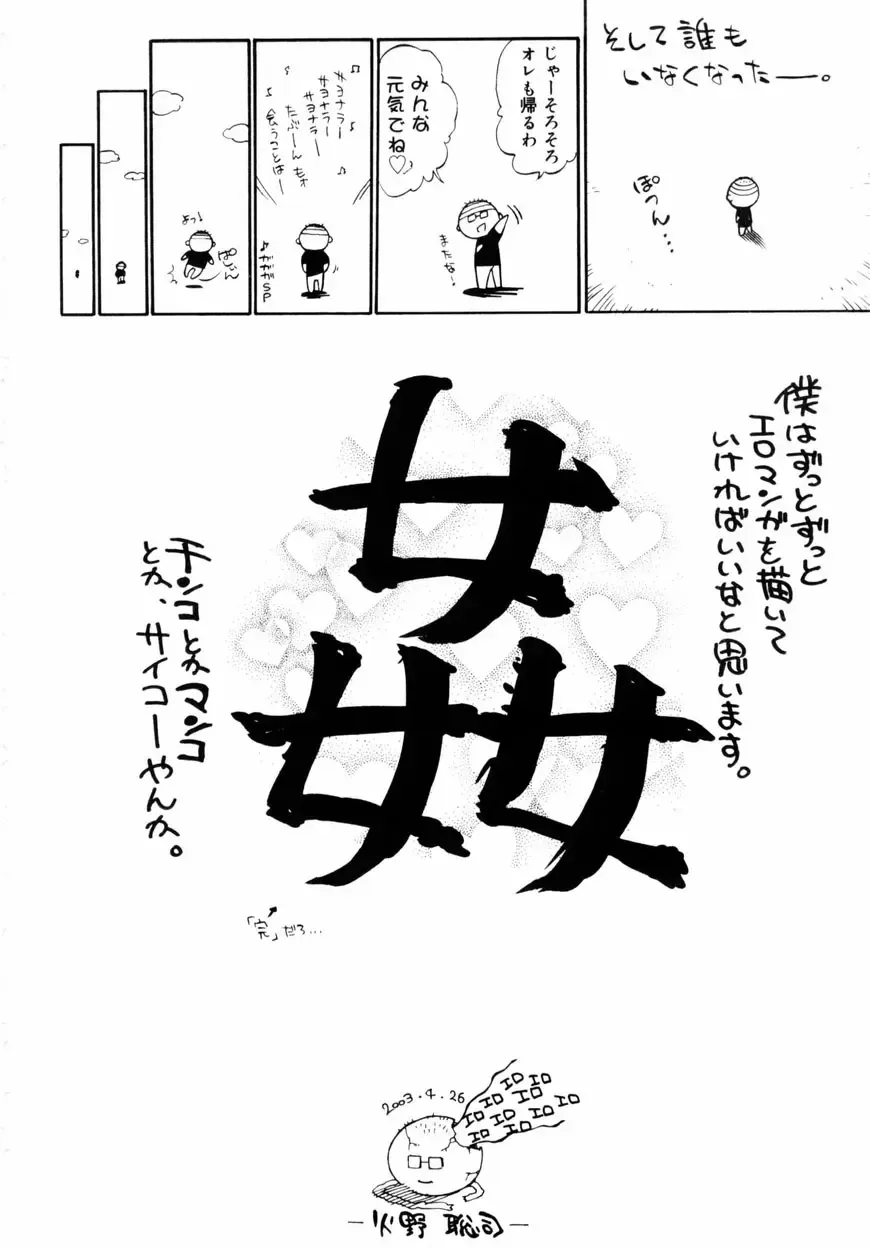 そして誰も
いなくなったー。
ぽつん…
じゃーそろそろ
オレも帰るわ
みんな
元気でね♡
またなー
♪サヨナラー
サヨナラー
たぶーんもォ
会うことはー♪
♪ガガガSP
よっ
ぱびゅん
僕はずっとずっと
エロマンガを描いて
いければいいなと思います。
姦
チンコとかマンコ
とか、サイコーやんか。
「完」だろ…
2003.4.26
エロ エロ
エロ エロ エロ
エロ エロ エロ エロ
エロ エロ
―火野 聡司―